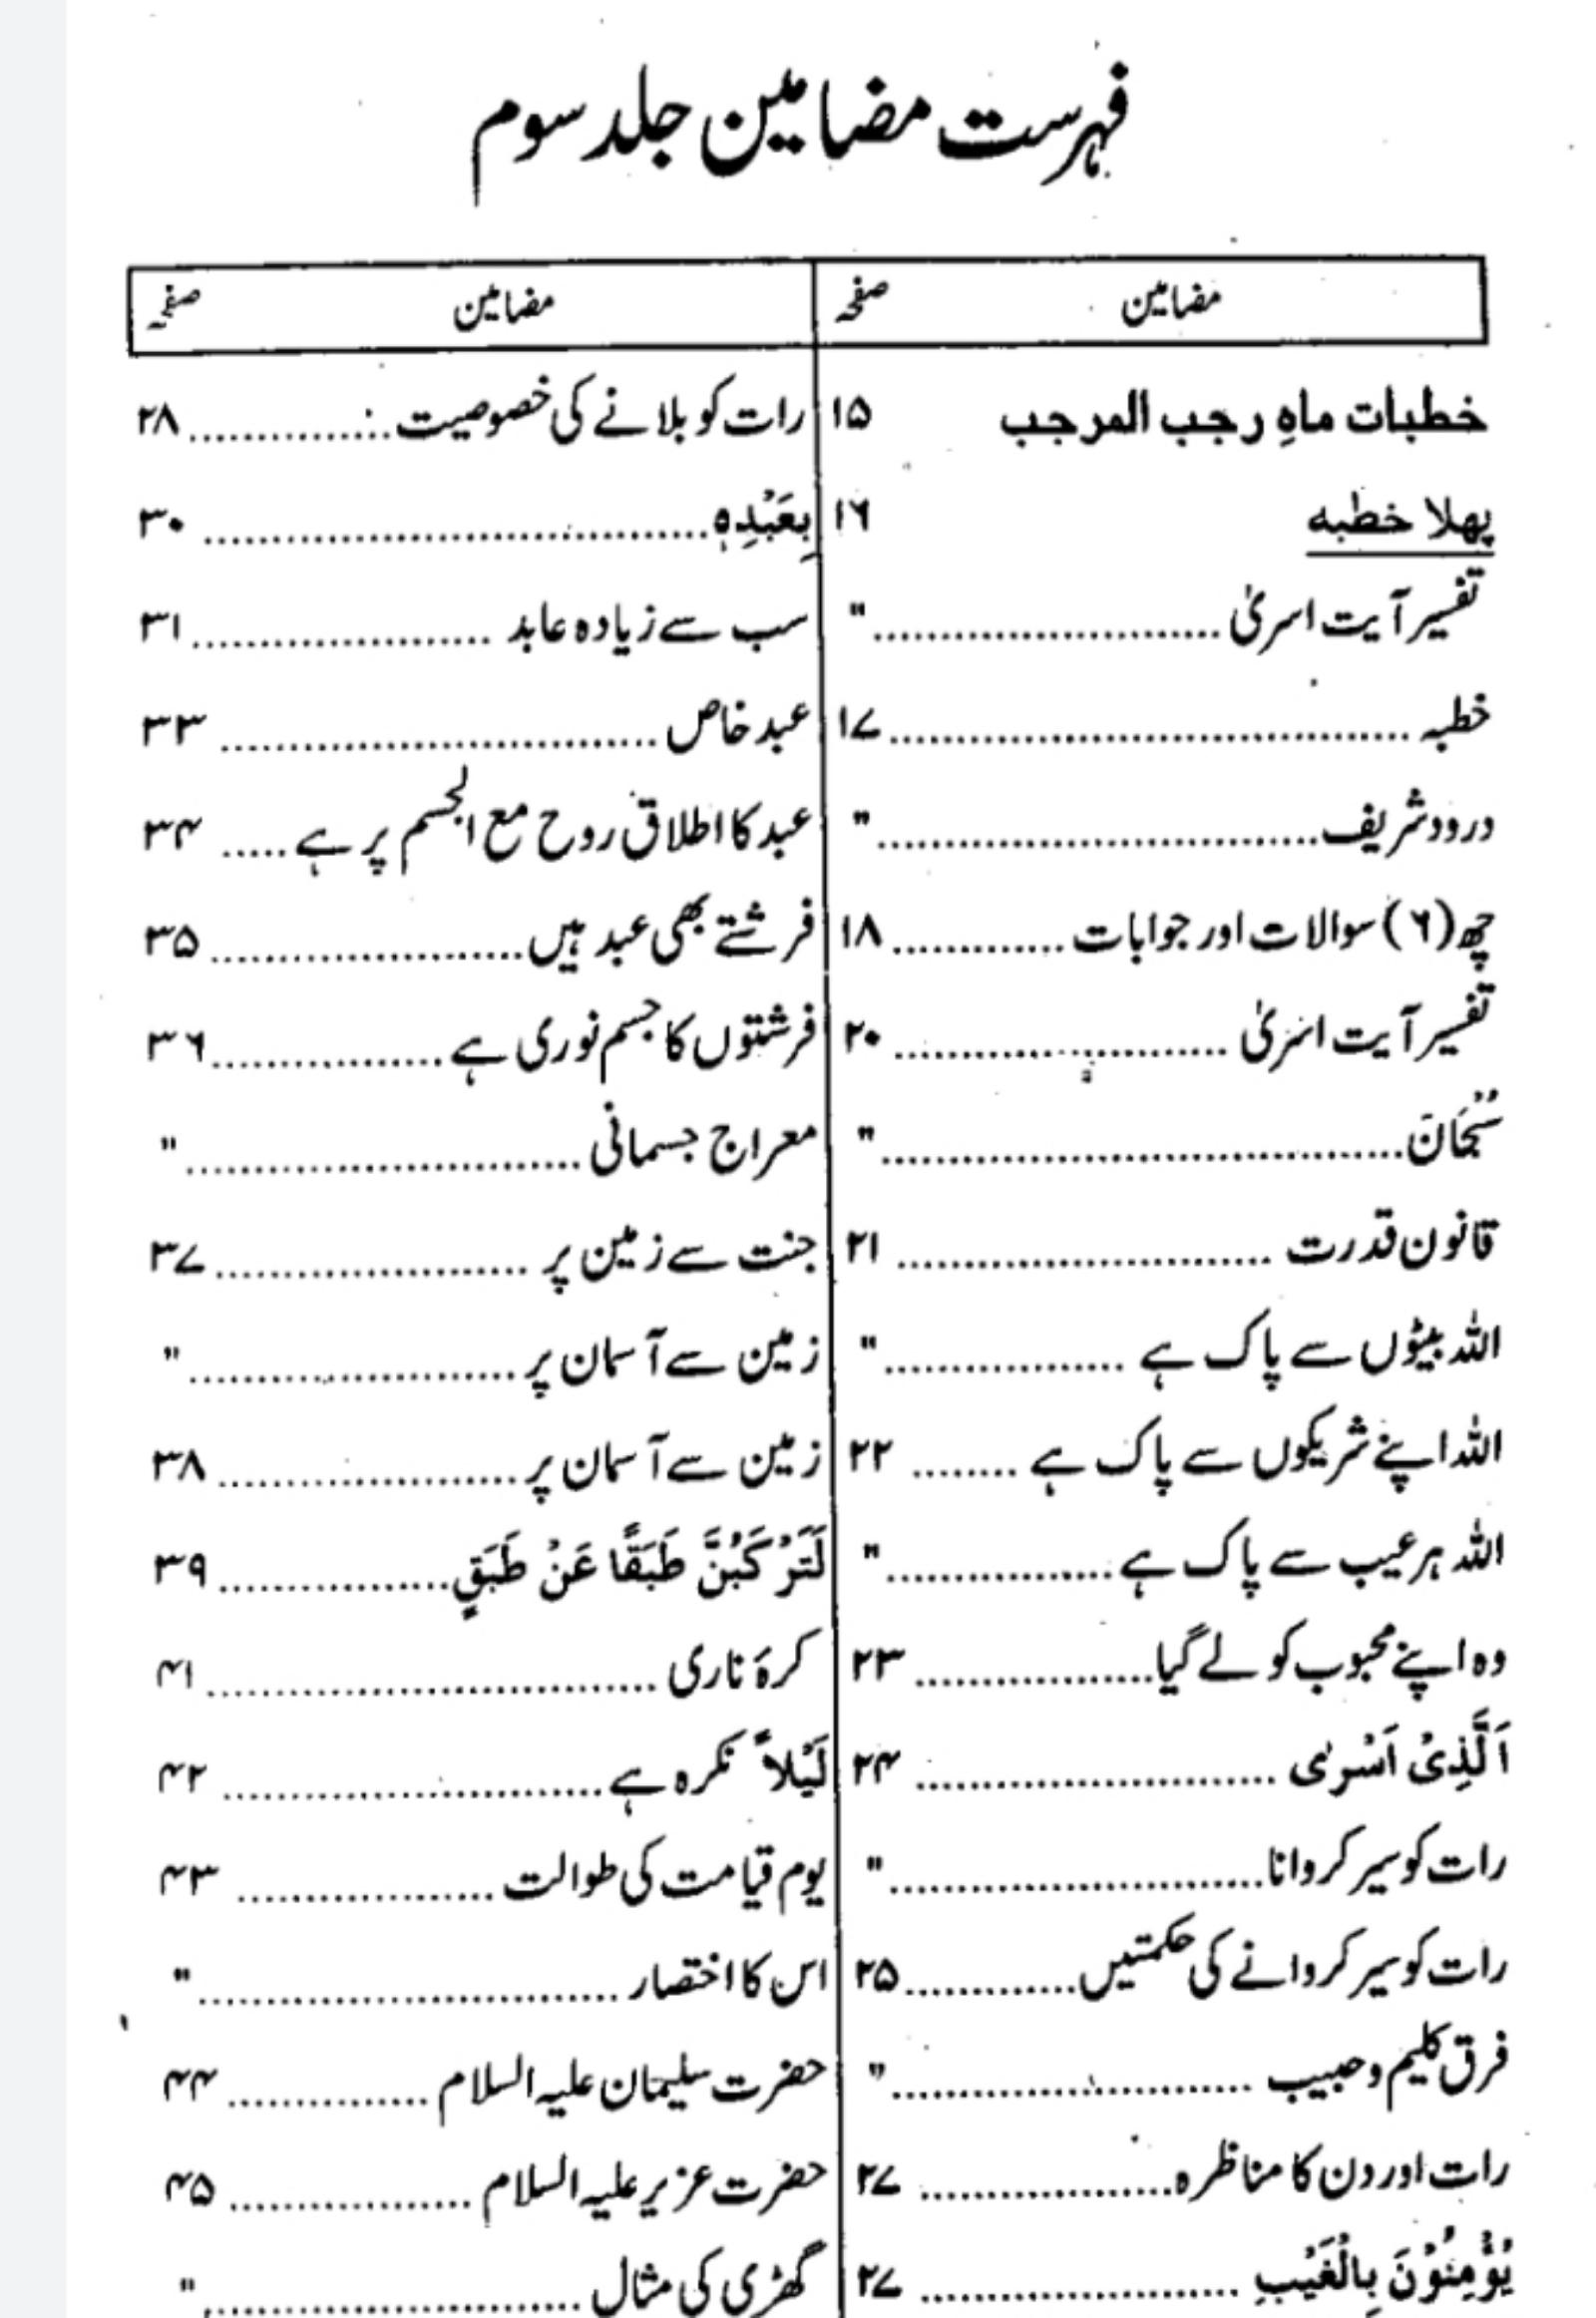 فہرست مضامین جلد سوم
مضامین صفحہ
خطبات ماہِ رجب المرجب ۱۵
پہلا خطبہ ۱۶
تفسیر آیت اسریٰ .......................... "
خطبہ ....................................... ۱۷
درود شریف................................. "
چھ (۶) سوالات اور جوابات ............. ۱۸
تفسیر آیت اسریٰ ......................... ۲۰
سُبْحَانَ....................................... "
قانون قدرت ............................ ۲۱
اللہ بیٹوں سے پاک ہے .................. "
اللہ اپنے شریکوں سے پاک ہے ........ ۲۲
اللہ ہر عیب سے پاک ہے ................. "
وہ اپنے محبوب کو لے گیا.................. ۲۳
اَلَّذِیْ اَسْرٰی ........................... ۲۴
رات کو سیر کروانا............................ "
رات کو سیر کروانے کی حکمتیں............. ۲۵
فرق کلیم و حبیب ........................... "
رات اور دن کا مناظرہ................... ۲۷
یُؤْمِنُوْنَ بِالْغَیْبِ ........................ ۲۷
مضامین صفحہ
رات کو بلانے کی خصوصیت :............... ۲۸
بِعَبْدِہٖ...................................... ۳۰
سب سے زیادہ عابد ....................... ۳۱
عبد خاص ................................. ۳۳
عبد کا اطلاق روح مع الجسم پر ہے ..... ۳۴
فرشتے بھی عبد ہیں........................ ۳۵
فرشتوں کا جسم نوری ہے ................. ۳۶
معراج جسمانی .............................. "
جنت سے زمین پر ........................ ۳۷
زمین سے آسمان پر ......................... "
زمین سے آسمان پر ....................... ۳۸
لَتَرْکَبُنَّ طَبَقًا عَنْ طَبَقٍ................. ۳۹
کرۂ ناری .................................. ۴۱
لَیْلاً نکرہ ہے............................. ۴۲
یوم قیامت کی طوالت ................... ۴۳
اس کا اختصار ................................ "
حضرت سلیمان علیہ السلام ............... ۴۴
حضرت عزیر علیہ السلام .................. ۴۵
گھڑی کی مثال ............................. "